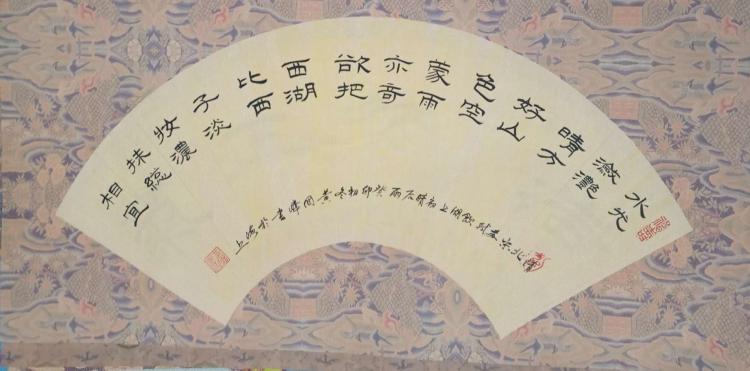 水光
瀲灧
晴方
好山
色空
蒙雨
亦奇
欲把
西湖
比西
子淡
妝濃
抹總
相宜
北宋苏轼飲湖上初晴后雨癸卯初冬黄書於上海